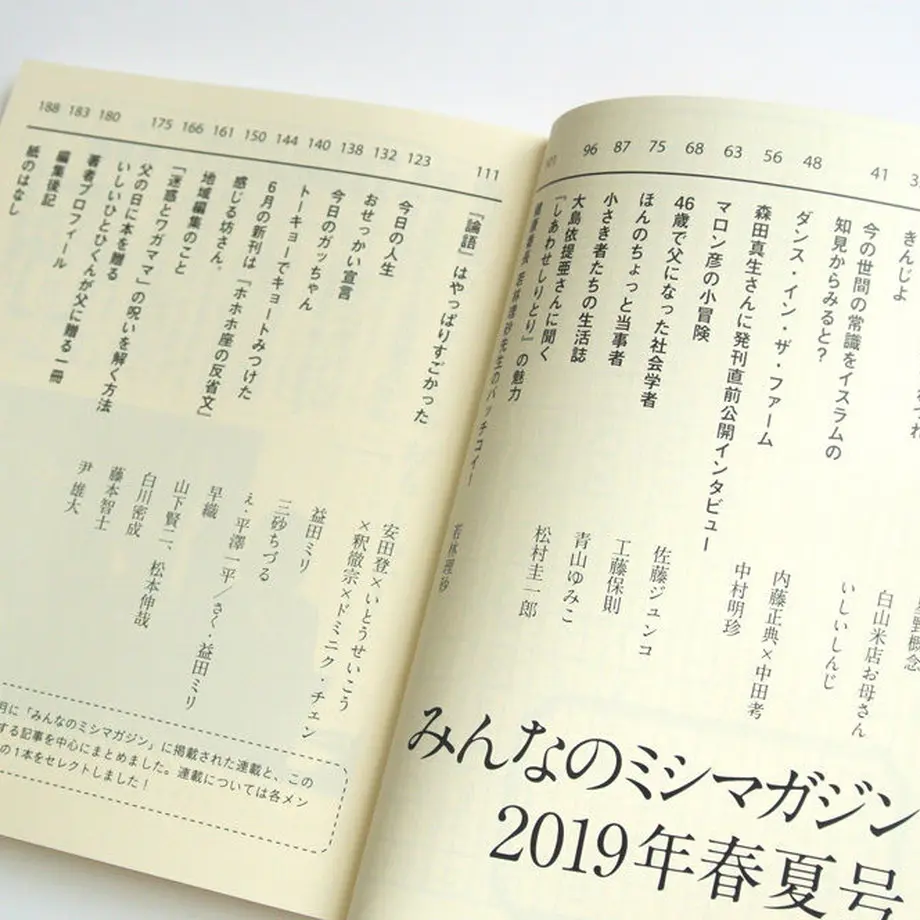 96 87 75 68 63 56 48 41
きんじよ
今の世間の常識をイスラムの
知見からみると？
ダンス・イン・ザ・ファーム
森田真生さんに発刊直前公開インタビュー
マロン彦の小冒険
46歳で父になった社会学者
ほんのちょっと当事者
小さき者たちの生活誌
大島依提亜さんに聞く
『しあわせしりとり』の魅力
いしいしんじ
白山米店お母さん
内藤正典×中田考
中村明珍
佐藤ジュンコ
工藤保則
青山ゆみこ
松村圭一郎
若林理砂
みんなのミシマガジン
2019年春夏号
188 183 180 175 166 161 150 144 140 138 132 123 111
『論語』はやっぱりすごかった
今日の人生
おせっかい宣言
今日のガッちゃん
トーキョーでキョートみつけた
6月の新刊は『ホホホ座の反省文』
感じる坊さん。
地域編集のこと
「迷惑とワガママ」の呪いを解く方法
父の日に本を贈る
いしいひとひくんが父に贈る一冊
著者プロフィール
編集後記
紙のはなし
安田登×いとうせいこう
×釈徹宗×ドミニク・チェン
益田ミリ
三砂ちづる
え・平澤一平／さく・益田ミリ
早織
山下賢二、松本伸哉
白川密成
藤本智士
尹 雄大
月に「みんなのミシマガジン」に掲載された連載と、この
する記事を中心にまとめました。連載については各メン
の1本をセレクトしました！